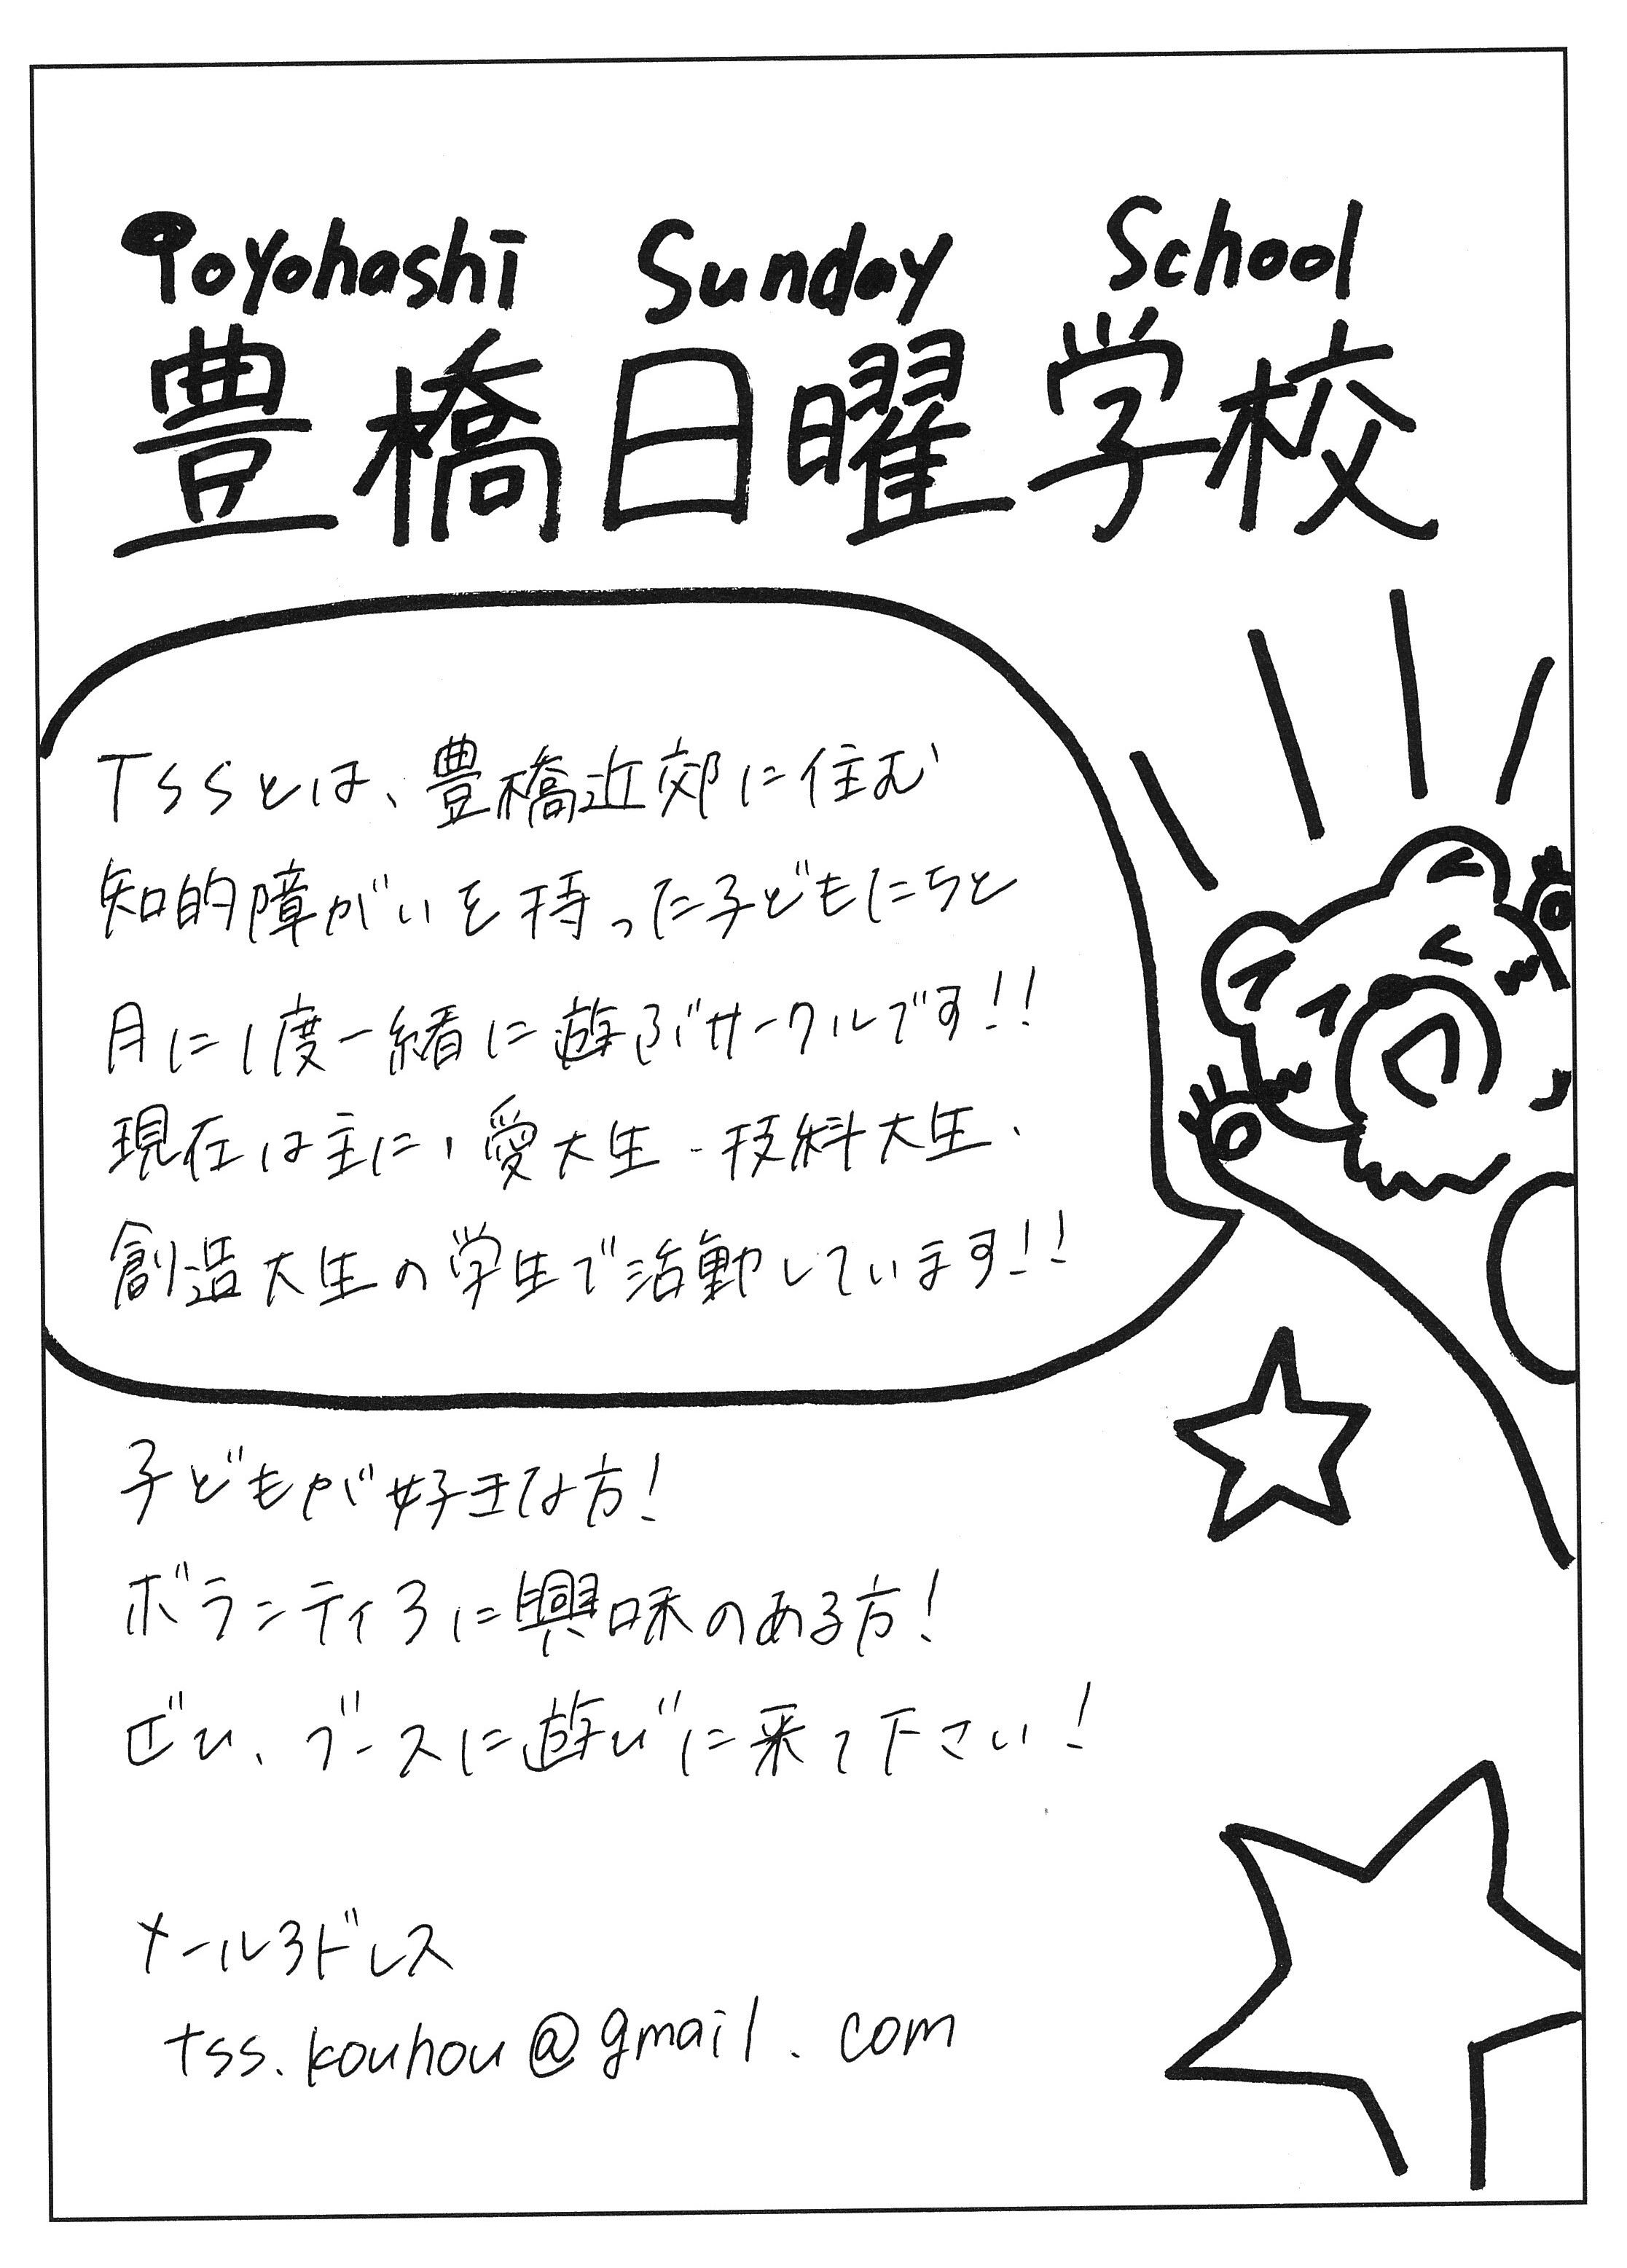 Toyohashi Sunday School
豊橋日曜学校
TSSとは、豊橋近郊に住む
知的障がいを持った子どもたちと
月に1度一緒に遊ぶサークルです!!
現在は主に、愛大生・技科大生・
創造大生の学生で活動しています!!
子どもが好きな方!
ボランティアに興味のある方!
ぜひ、ブースに遊びに来て下さい!
メールアドレス
tss.kouhou@gmail.com